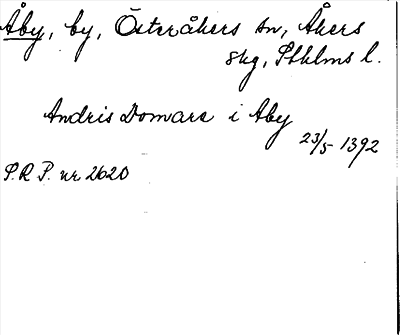 Åby, by, Österåkers sn, Åkers
skg, Sthlms l.
Andris Domare i Aby
23/5 1392
P.R.P. nr 2620